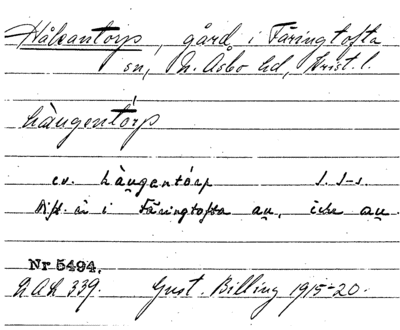 Hålsantorp, gård i Färingtofta
sn, N. Åsbo hd, Krist. l.
hàu̯gentórp
ev. hàu̯gantórp
Dift. är i Färingtofta au̯, icke
Nr 5494.
LAL 339. Gust. Billing 1915-20.